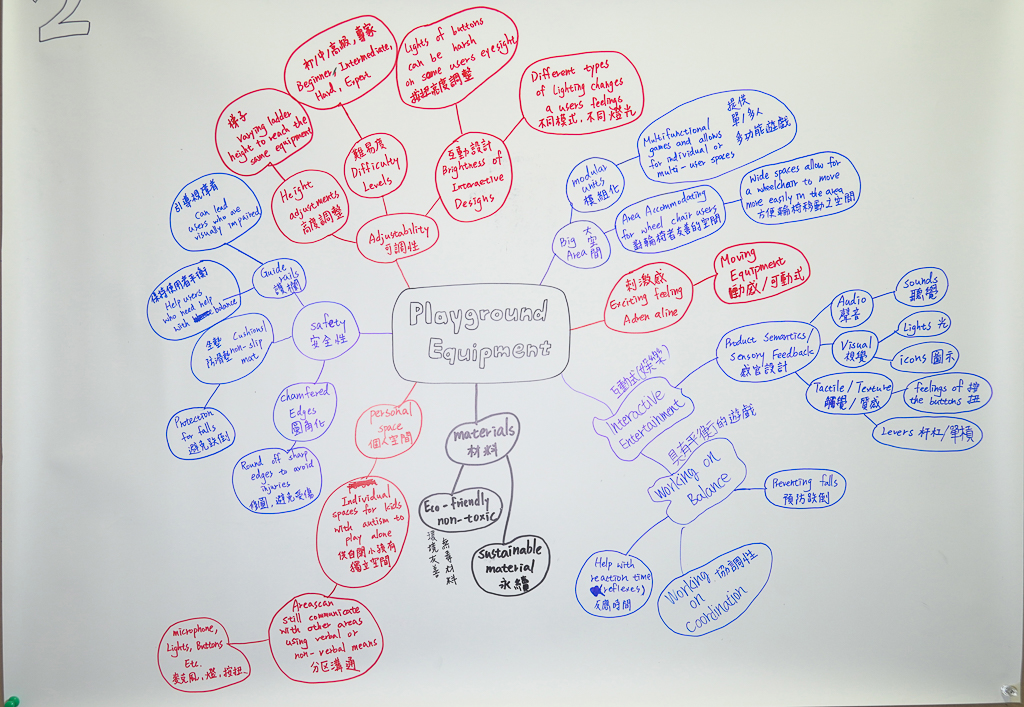 2
Playground
Equipment
Adjustability
可調性
Height
adjustments
高度調整
梯子
Varying ladder
height to reach the
same equipment
難易度
Difficulty
Levels
初/中/高級,專家
Beginner, Intermediate,
Hard, Expert
互動設計
Brightness of
Interactive
Designs
Lights of buttons
can be harsh
on some users eyesight
按鈕亮度調整
Different types
of Lighting changes
a users feelings
不同模式,不同燈光
Big 大
Area 空間
modular
units
模組化
Multifunctional
games and allows
for individual or
multi-user spaces
提供
單/多人
多功能遊戲
Area Accommodating
for wheel chair users
對輪椅者友善的空間
Wide spaces allow for
a wheelchair to move
more easily in the area
方便輪椅移動之空間
刺激感
Exciting feeling
Adrenaline
Moving
Equipment
動感/可動式
互動式(娛樂)
Interactive
Entertainment
Product Semantics/
Sensory Feedback
感官設計
Audio
聲音
sounds
聽覺
Visual
視覺
Lights 光
icons 圖示
Tactile/Texture
觸覺/質感
feelings of 按
the buttons 扭
Levers 杆杠/單槓
具有平衡行的遊戲
Working on
Balance
Preventing falls
預防跌倒
Help with
reaction time
(reflexes)
反應時間
Working 協調性
on
Coordination
materials
材料
Eco-friendly
non-toxic
環境友善
無毒材料
sustainable
material
永續
personal
space
個人空間
Individual
spaces for kids
with autism to
play alone
供自閉小孩有
獨立空間
Areas can
still communicate
with other areas
using verbal or
non-verbal means
分区溝通
microphone,
Lights, Buttons
Etc.
麥克風,燈,按扭
safety
安全性
Guide
rails
護欄
引導視障者
Can lead
users who are
visually impaired
保持使用者平衡
Help users
who need help
with balance
坐墊 Cushions/
防滑墊 non-slip
mat
Protection
for falls
避免跌倒
chamfered
Edges
圓角化
Round off sharp
edges to avoid
injuries
修圓,避免受傷